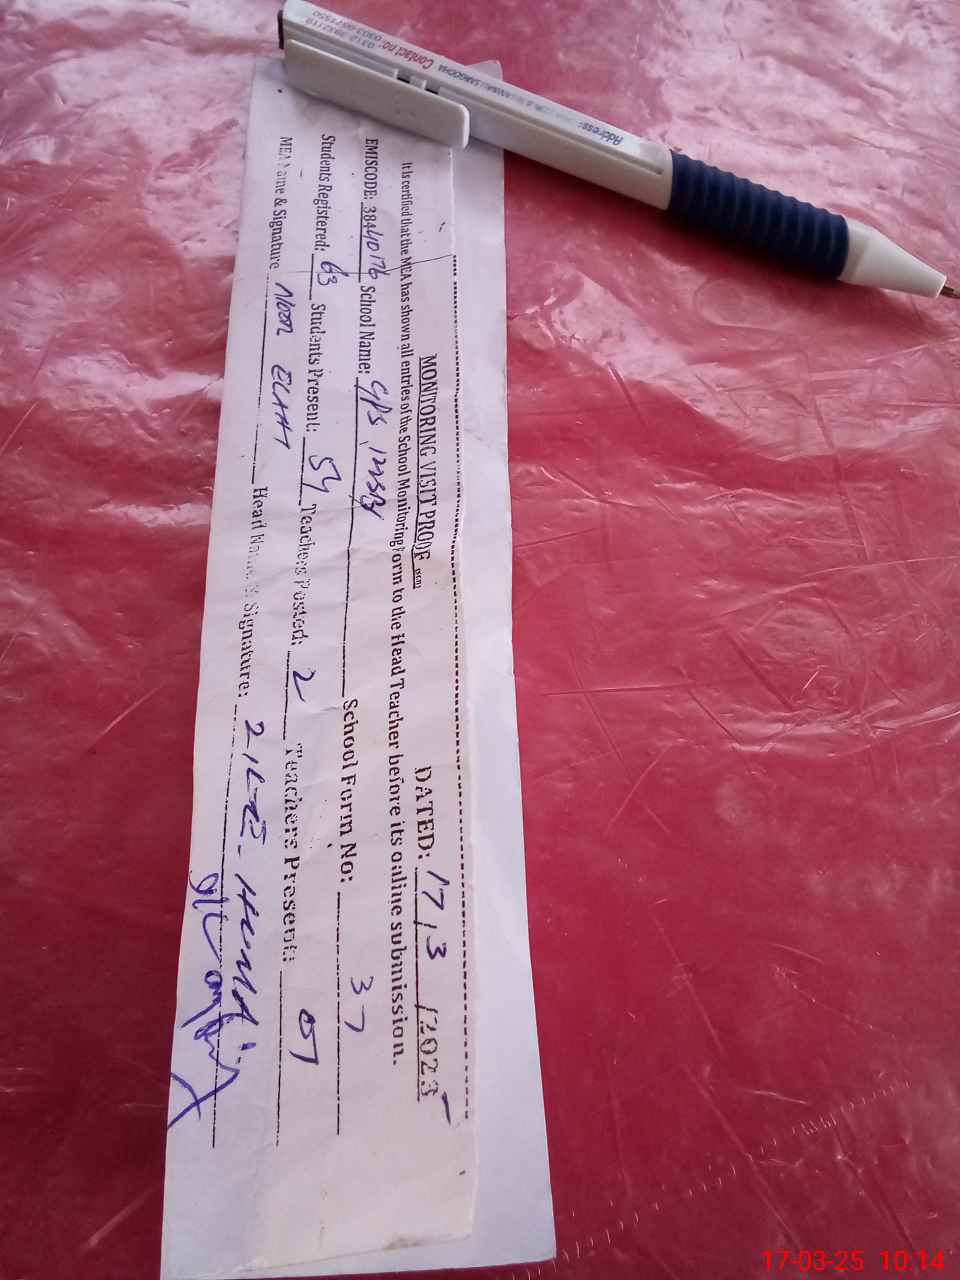 MONITORING VISIT PROOF (SED) DATED: 17/3/2025
It is certified that the MEA has shown all entries of the School Monitoring Form to the Head Teacher before its online submission.
EMISCODE: 38440176 School Name: GPS School Form No: 37
Students Registered: 63 Students Present: 54 Teachers Posted: 2 Teachers Present: 01
MEA Name & Signature Noor ELAHI Head Name & Signature: HUMA
Contact no:
Address:
17-03-25 10:14